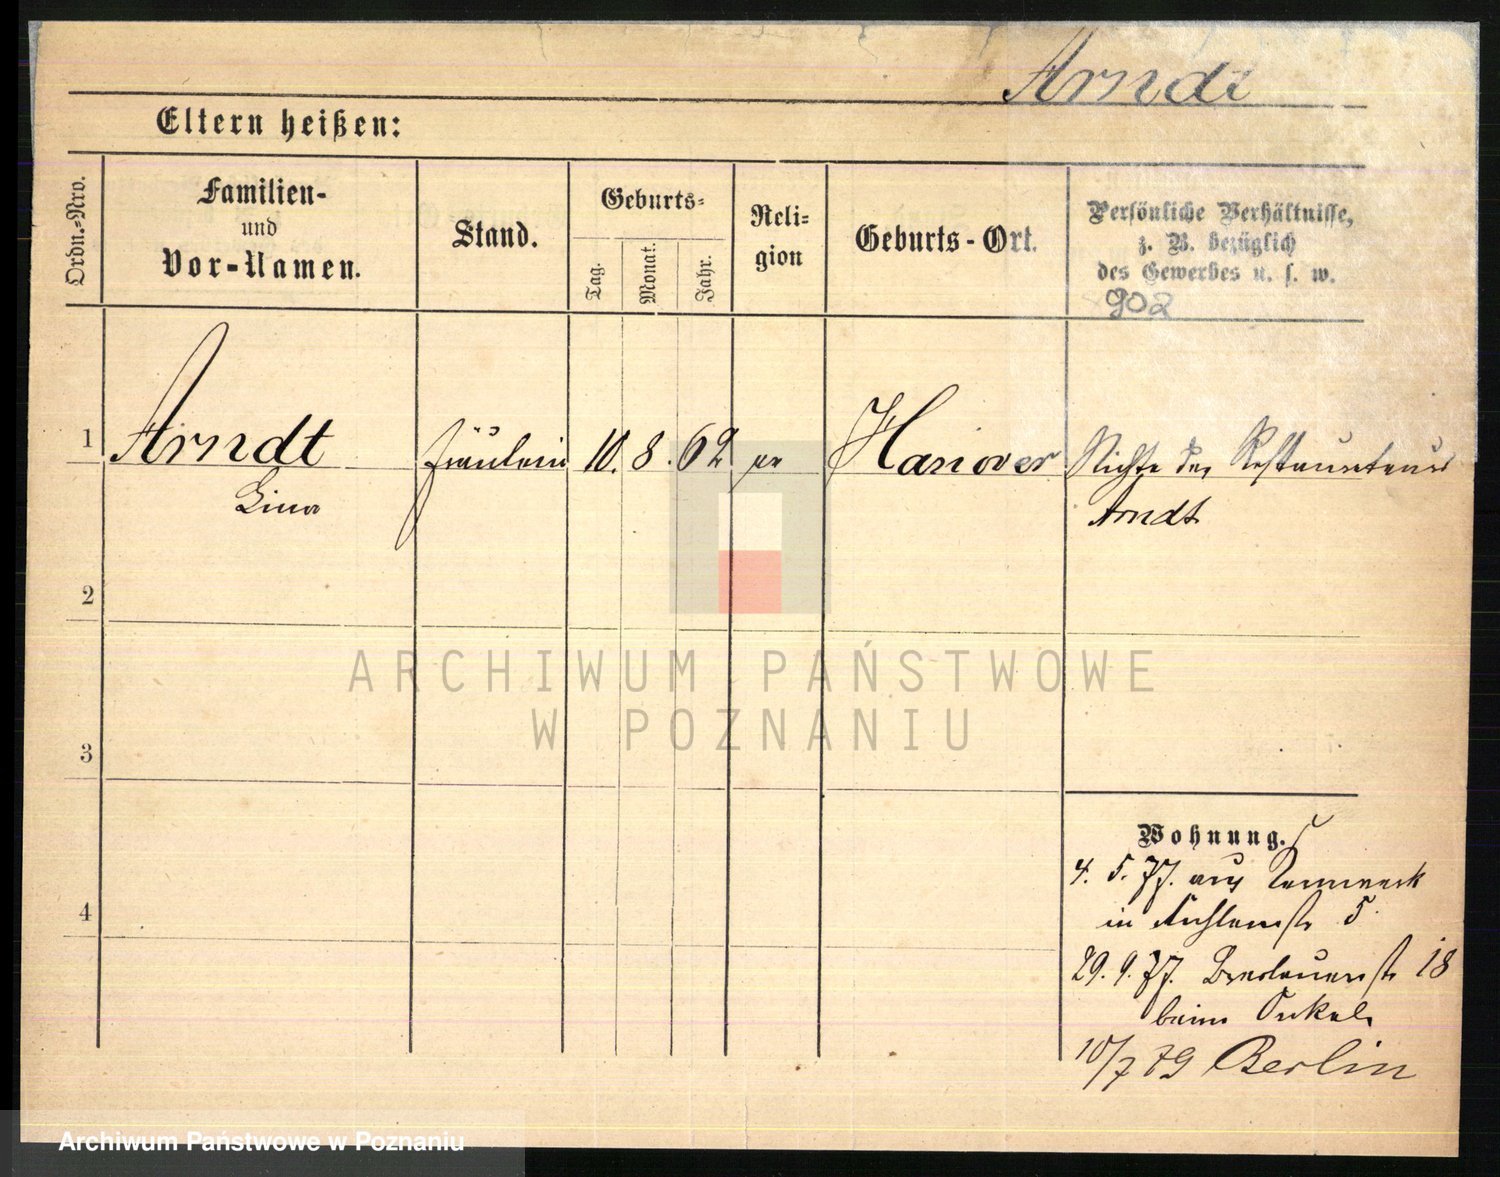 Arndt
Eltern heißen:
Ordn.-Nro.
Familien-
und
Vor-Namen.
Stand.
Geburts-
Tag.
Monat.
Jahr.
Reli-
gion
Geburts-Ort.
Persönliche Verhältnisse,
z. B. bezüglich
des Gewerbes u. s. w.
902
1
Arndt
Fräulein
10.
8.
62
ev
Hanover
Nichte des Restaurateurs
Lina
Arndt
2
3
4
ARCHIWUM PAŃSTWOWE
W POZNANIU
Wohnung.
4. 5. 77. aus
in 5
29. 9. 77. Breslauerstr 18
beim Onkel
10/7 79 Berlin
Archiwum Państwowe w Poznaniu